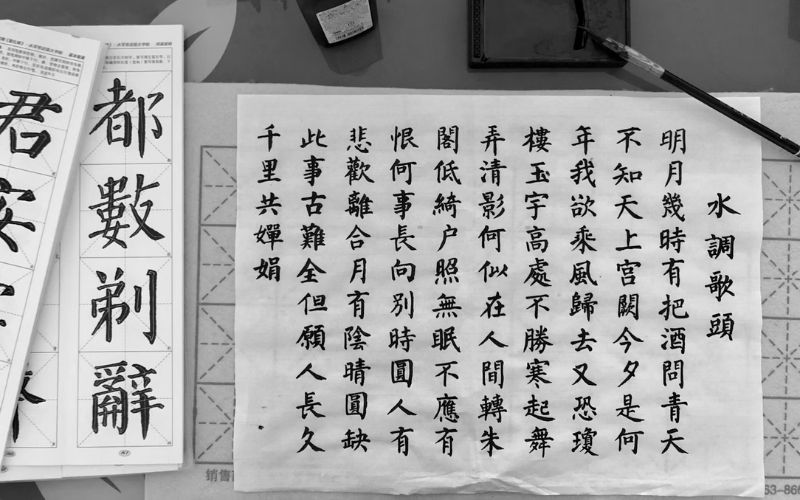 水調歌頭
明月幾時有把酒問青天
不知天上宮闕今夕是何
年我欲乘風歸去又恐瓊
樓玉宇高處不勝寒起舞
弄清影何似在人間轉朱
閣低綺户照無眠不應有
恨何事長向別時圓人有
悲歡離合月有陰晴圓缺
此事古難全但願人長久
千里共嬋娟
都數剃辭
君安
销售